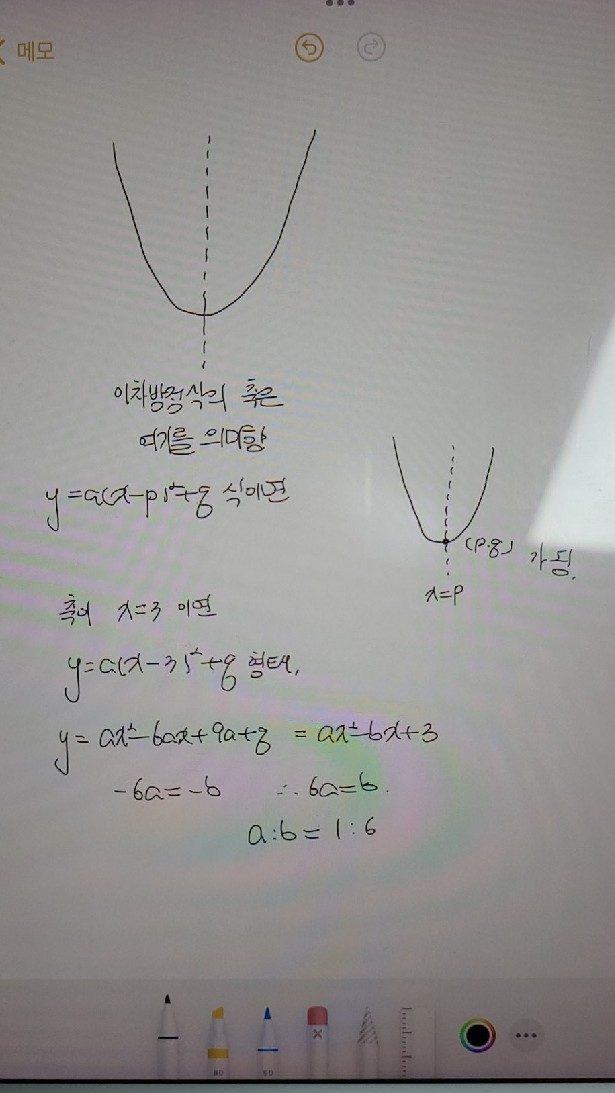 메모
이차방정식의 축은
여기를 의미함
y=a(x-p)²+q 식이면
(p.q) 가 됨.
x=p
축이 x=3 이면
y=a(x-3)²+q 형태,
y=ax²-6ax+9a+q = ax²-bx+3
-6a=-b ∴ 6a=b.
a:b=1:6
80
50